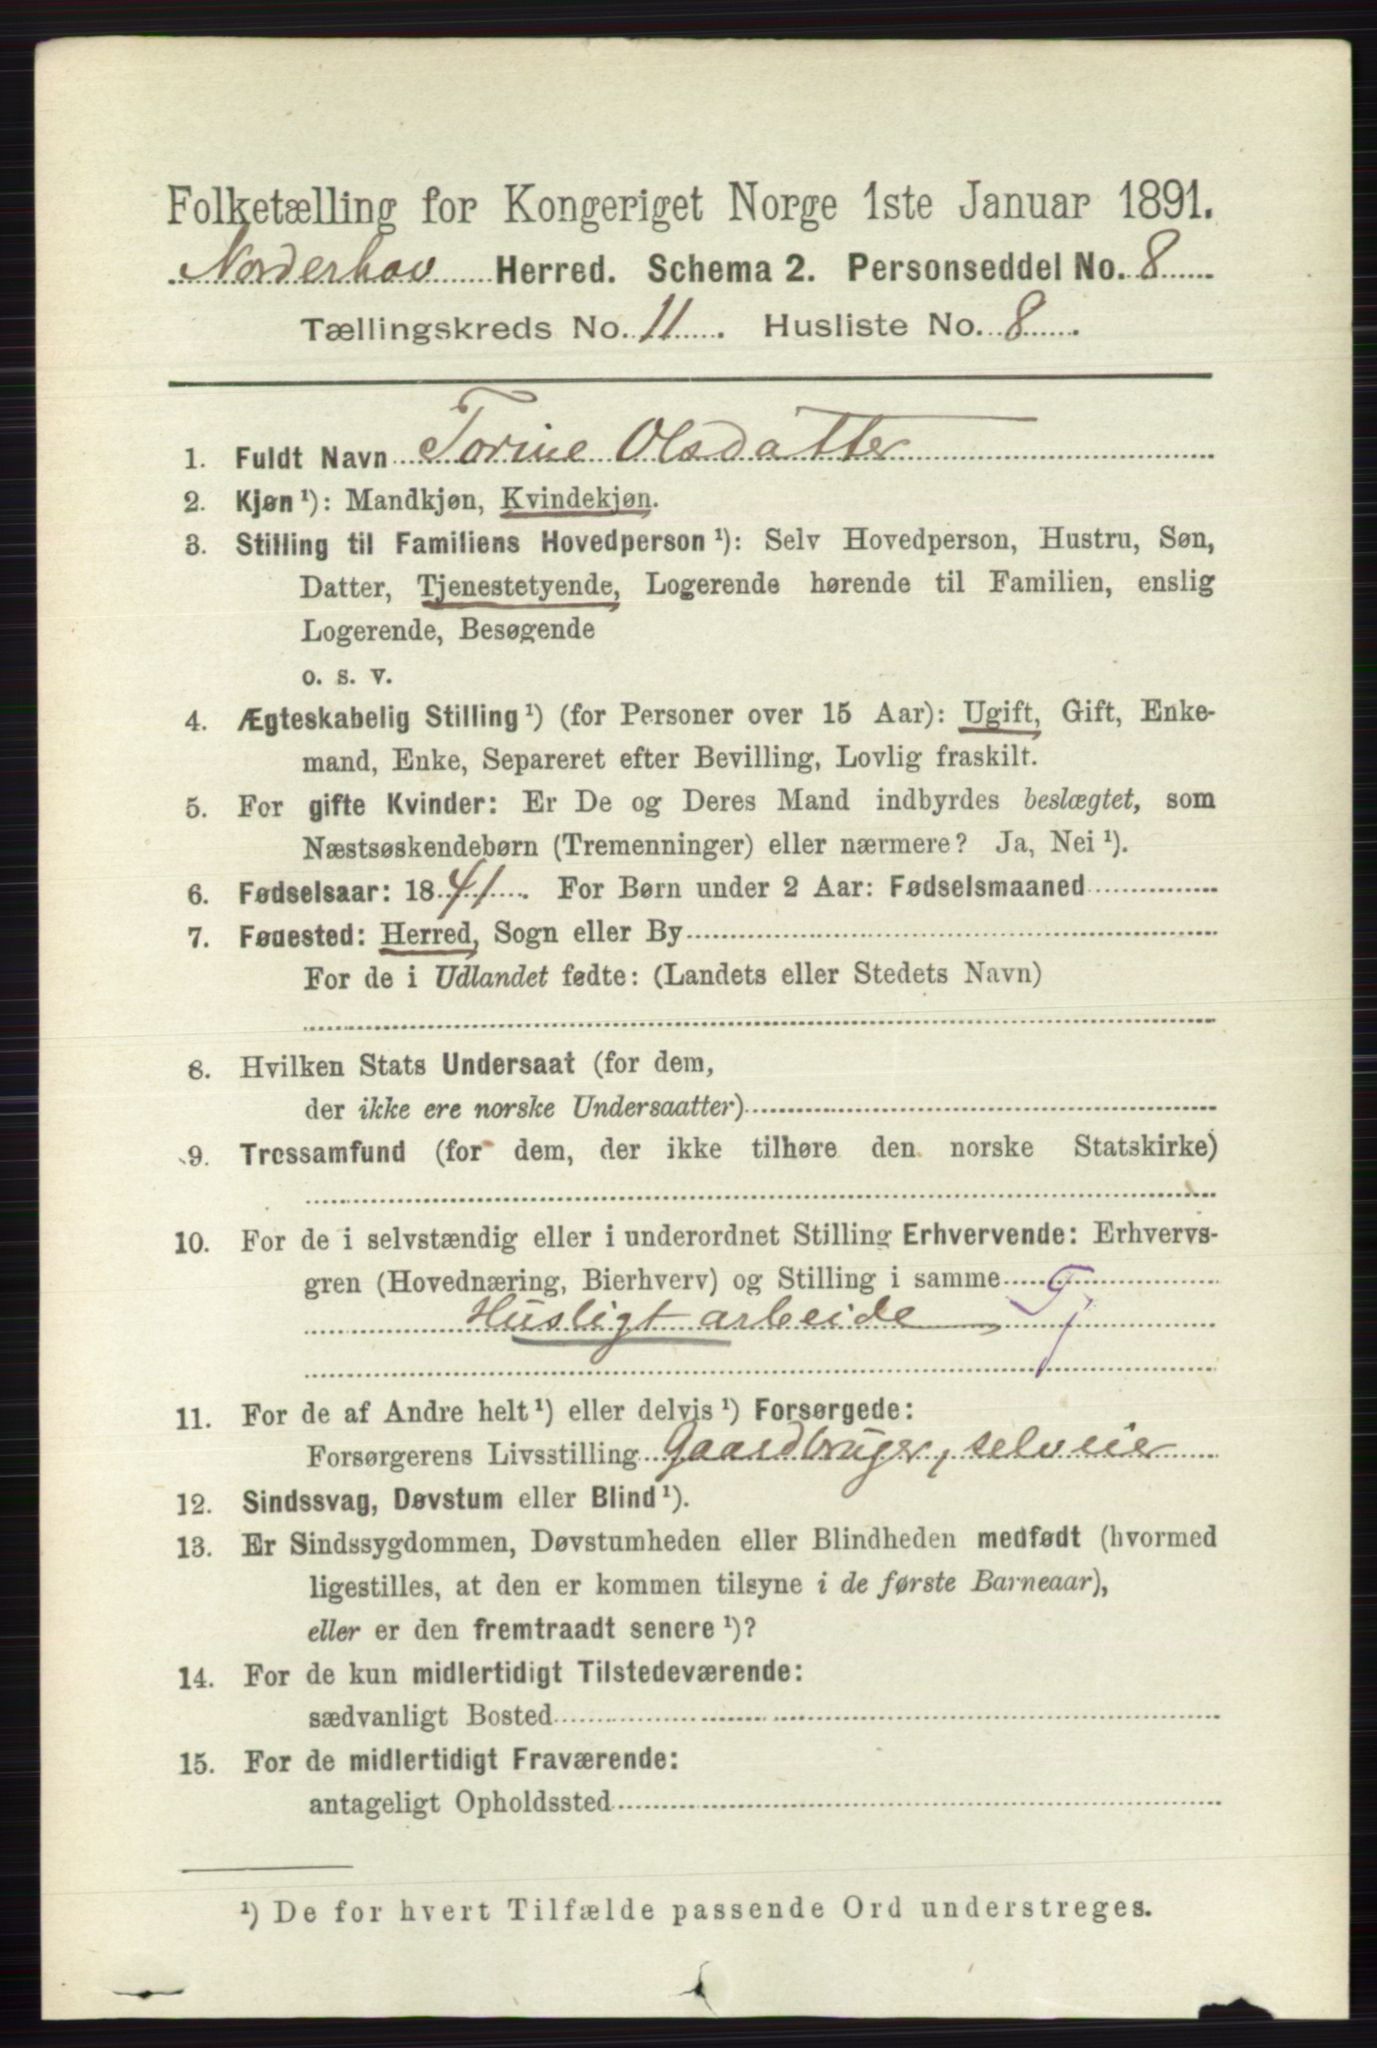 Folketælling for Kongeriget Norge 1ste Januar 1891.
Norderhov Herred. Schema 2. Personseddel No. 8
Tællingskreds No. 11. Husliste No. 8
1. Fuldt Navn Torine Olsdatter
2. Kjøn ¹): Mandkjøn, Kvindekjøn.
3. Stilling til Familiens Hovedperson ¹): Selv Hovedperson, Hustru, Søn,
Datter, Tjenestetyende, Logerende hørende til Familien, enslig
Logerende, Besøgende
o. s. v.
4. Ægteskabelig Stilling ¹) (for Personer over 15 Aar): Ugift, Gift, Enke-
mand, Enke, Separeret efter Bevilling, Lovlig fraskilt.
5. For gifte Kvinder: Er De og Deres Mand indbyrdes beslægtet, som
Næstsøskendebørn (Tremenninger) eller nærmere? Ja, Nei ¹).
6. Fødselsaar: 1841. For Børn under 2 Aar: Fødselsmaaned
7. Fødested: Herred, Sogn eller By
For de i Udlandet fødte: (Landets eller Stedets Navn)
8. Hvilken Stats Undersaat (for dem,
der ikke ere norske Undersaatter)
9. Trossamfund (for dem, der ikke tilhøre den norske Statskirke)
10. For de i selvstændig eller i underordnet Stilling Erhvervende: Erhvervs-
gren (Hovednæring, Bierhverv) og Stilling i samme
Husligt arbeide Tj
11. For de af Andre helt ¹) eller delvis ¹) Forsørgede:
Forsørgerens Livsstilling Gaardbruger, selveier
12. Sindssvag, Døvstum eller Blind ¹).
13. Er Sindssygdommen, Døvstumheden eller Blindheden medfødt (hvormed
ligestilles, at den er kommen tilsyne i de første Barneaar),
eller er den fremtraadt senere ¹)?
14. For de kun midlertidigt Tilstedeværende:
sædvanligt Bosted
15. For de midlertidigt Fraværende:
antageligt Opholdssted
¹) De for hvert Tilfælde passende Ord understreges.